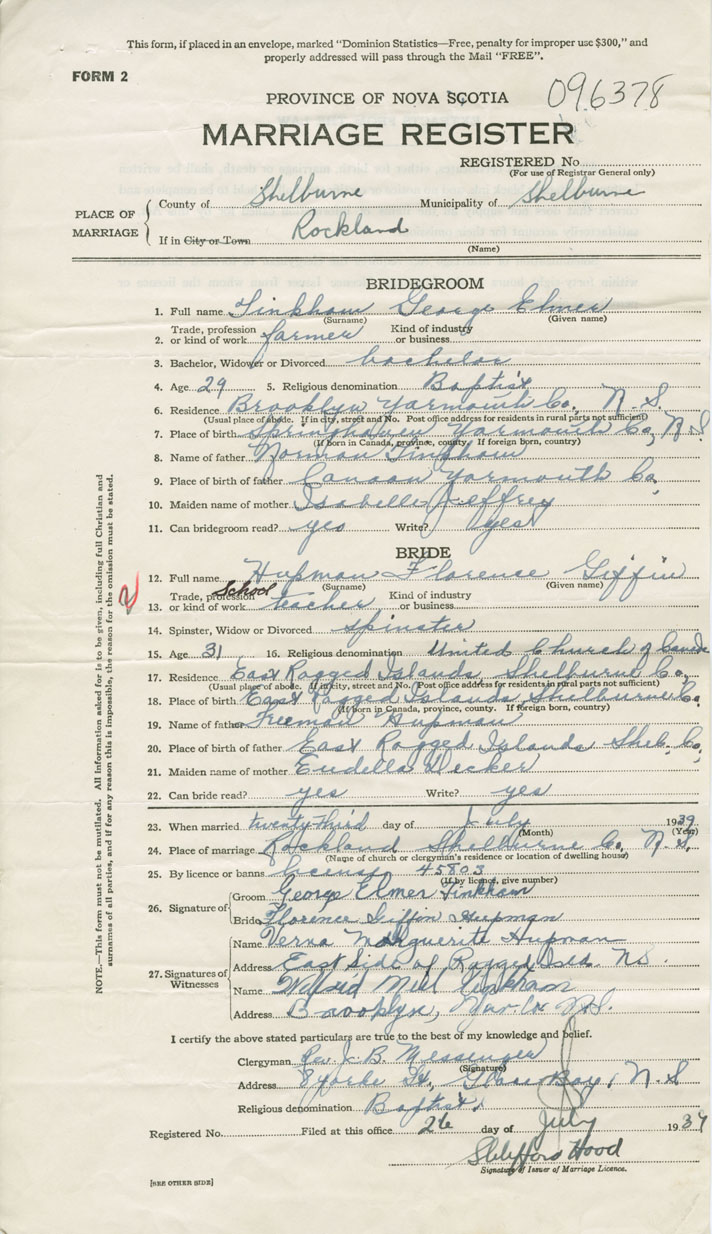 This form, if placed in an envelope, marked “Dominion Statistics—Free, penalty for improper use $300,” and
properly addressed will pass through the Mail “FREE”.
FORM 2
PROVINCE OF NOVA SCOTIA
096378
MARRIAGE REGISTER
REGISTERED No
(For use of Registrar General only)
PLACE OF MARRIAGE
County of Shelburne Municipality of Shelburne
If in City or Town Rockland
(Name)
BRIDEGROOM
1. Full name Tinkham George Elmer
(Surname) (Given name)
2. Trade, profession or kind of work farmer Kind of industry or business
3. Bachelor, Widower or Divorced bachelor
4. Age 29 5. Religious denomination Baptist
6. Residence Brooklyn Yarmouth Co, N. S
(Usual place of abode. If in city, street and No. Post office address for residents in rural parts not sufficient)
7. Place of birth Springhaven Yarmouth Co, N. S
(If born in Canada, province, county. If foreign born, country)
8. Name of father Norman Tinkham
9. Place of birth of father Canaan Yarmouth Co,
10. Maiden name of mother Isabelle Jeffrey
11. Can bridegroom read? yes Write? yes
BRIDE
12. Full name Hupman Florence Giffin
(Surname) (Given name)
13. Trade, profession or kind of work School teacher Kind of industry or business
14. Spinster, Widow or Divorced spinster
15. Age 31 16. Religious denomination United Church of Canada
17. Residence East Ragged Islands, Shelburne Co,
(Usual place of abode. If in city, street and No. Post office address for residents in rural parts not sufficient)
18. Place of birth East Ragged Islands, Shelburne Co,
(If born in Canada, province, county. If foreign born, country)
19. Name of father Freeman Hupman
20. Place of birth of father East Ragged Islands Shel. Co,
21. Maiden name of mother Eudella Decker
22. Can bride read? yes Write? yes
23. When married twenty third day of July 1939
(Month) (Year)
24. Place of marriage Rockland Shelburne Co, N. S,
(Name of church or clergyman's residence or location of dwelling house)
25. By licence or banns license 45803
(If by licence, give number)
26. Signature of
Groom George Elmer Tinkham
Bride Florence Giffin Hupman
27. Signatures of Witnesses
Name Verna Marguerite Hupman
Address East Side of Ragged Isds. N.S.
Name Tinkham
Address Brooklyn, Yar. Co. N.S.
I certify the above stated particulars are true to the best of my knowledge and belief.
Clergyman Rev. J. B. Messenger
(Signature)
Address 8 Yorke St, Glace Bay, N. S
Religious denomination Baptist,
Registered No. Filed at this office 26 day of July 1939
Hood
Signature of Issuer of Marriage Licence.
[SEE OTHER SIDE]
NOTE.—This form must not be mutilated. All information asked for is to be given, including full Christian and
surnames of all parties, and if for any reason this is impossible, the reason for the omission must be stated.